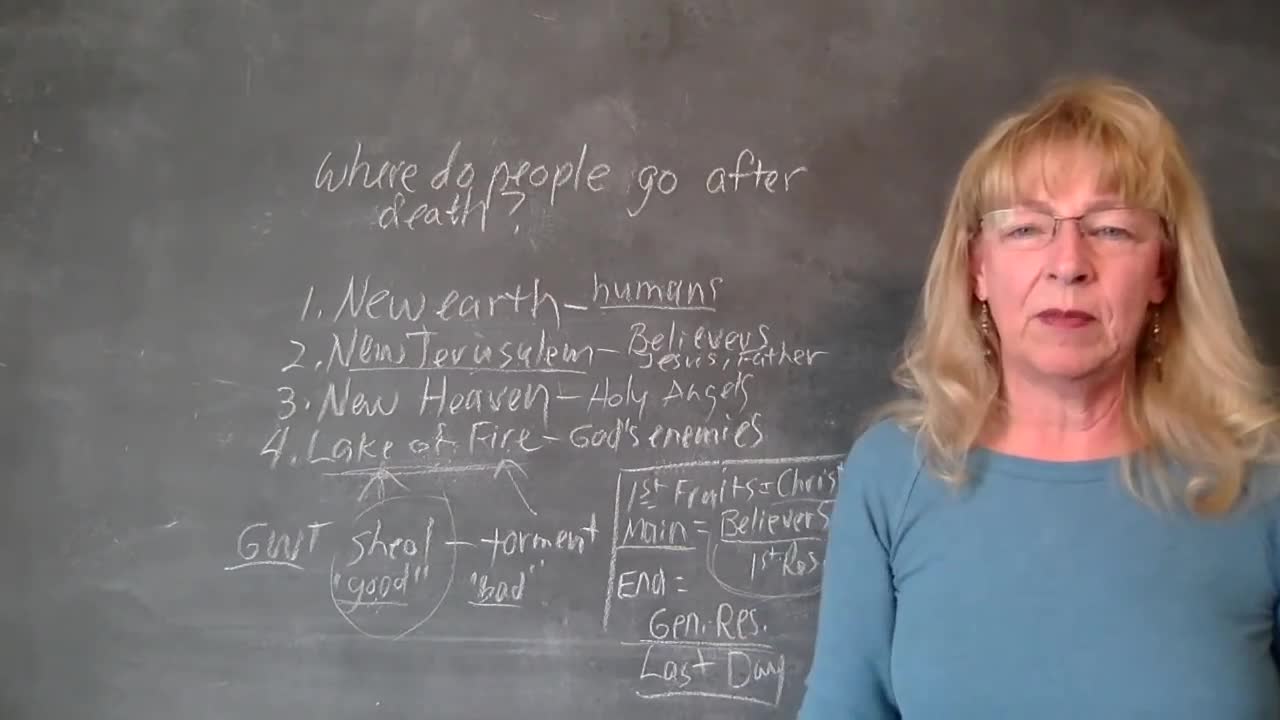 where do people go after
death?
1. New earth – humans
2. New Jerusalem – Believers
Jesus, Father
3. New Heaven – Holy Angels
4. Lake of Fire – God's enemies
GWT sheol – torment
"good" "bad"
1st Fruits = Christ
Main = Believers
1st Res
End =
Gen. Res.
Last Day